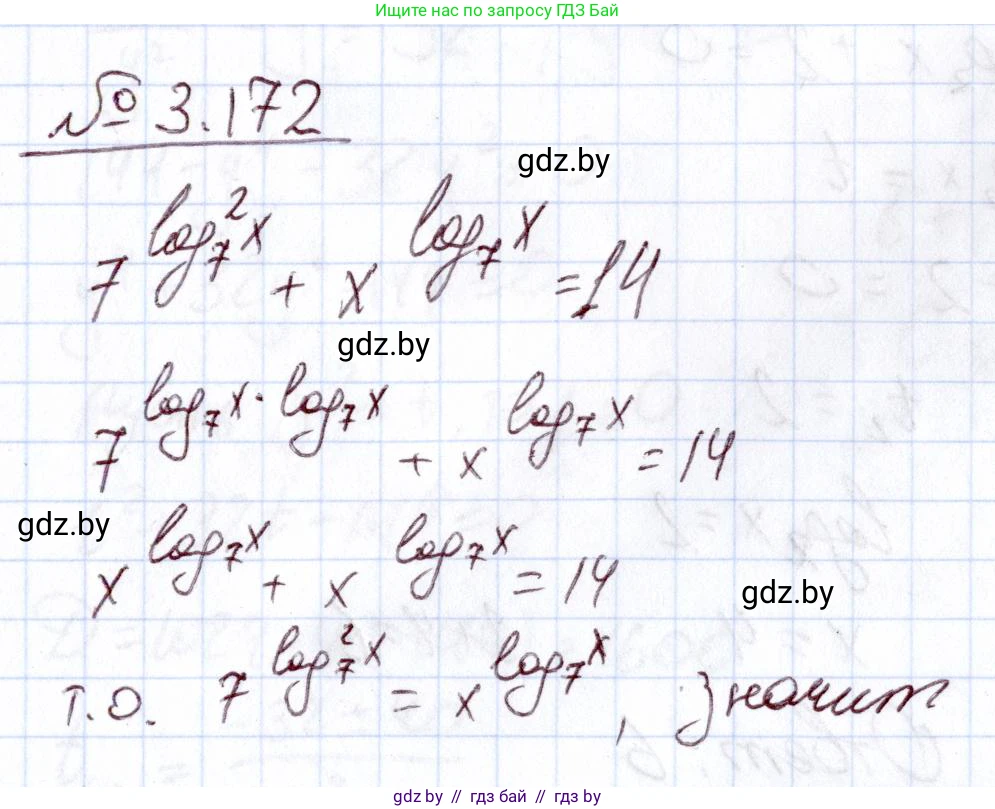 Ищите нас по запросу ГДЗ Бай
№ 3.172
gdz.by
7^{log_7^2 x} + x^{log_7 x} = 14
gdz.by
7^{log_7 x · log_7 x} + x^{log_7 x} = 14
gdz.by
x^{log_7 x} + x^{log_7 x} = 14
gdz.by
т.о. 7^{log_7^2 x} = x^{log_7 x}, значит
gdz.by // гдз бай // гдз by